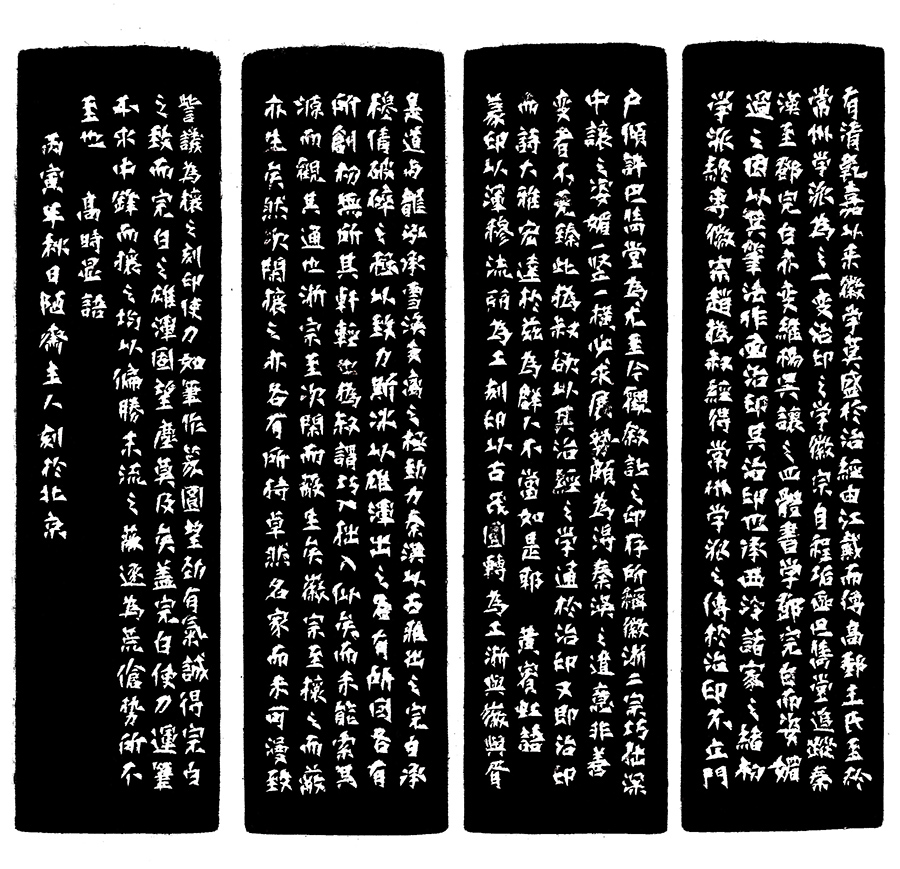 有清乾嘉以来徽学莫盛於治經由江戴而傳高郵王氏至於
常州学派為之一变治印之学徽宗自程垢區巴雋堂追蹤秦
漢至鄧完白亦变維楊吳讓之四體書学鄧完白而姿媚
過之因以其筆法作画治印其治印也承西泠諸家之緒初
学派終專徽宗趙撝叔經得常州学派之傳於治印不立門
户傾許巴雋堂為尤至今觀叙訟之印存所稱徽浙二宗巧拙深
中讓之姿媚一竪一横必求展勢頗為得秦漢之遺意非善
变者不克臻此撝叔欲以其治經之学通於治印又即治印
而詩大雅宏達於兹為群人不當如是耶 黄賓虹語
篆印以渾穆流丽為工刻印以古茂圓轉為工浙與徽與胥
是道丙龍泓承雪漁之極勁力秦漢以古雅出之完白承
穆倩破碎之極以致力斯冰以雄渾出之各有所因各有
所創初無所其軒輊也撝叔謂巧入拙入似矣而未能索其
源而觀其通也浙宗至次閑而蔽生矣徽宗至攘之而蔽
亦生矣然次閑攘之亦各有所恃卓然名家而未可漫致
訾議為攘之刻印使刀如筆作篆圓整勁有氣誠得宗白
之致而完白之雄渾固望塵莫及矣蓋完白使刀運筆
本求中鋒而攘之均以偏勝末流之蔽逐為荒傖勢所不
至也 高時显語
丙寅年秋日随齋主人刻於北京